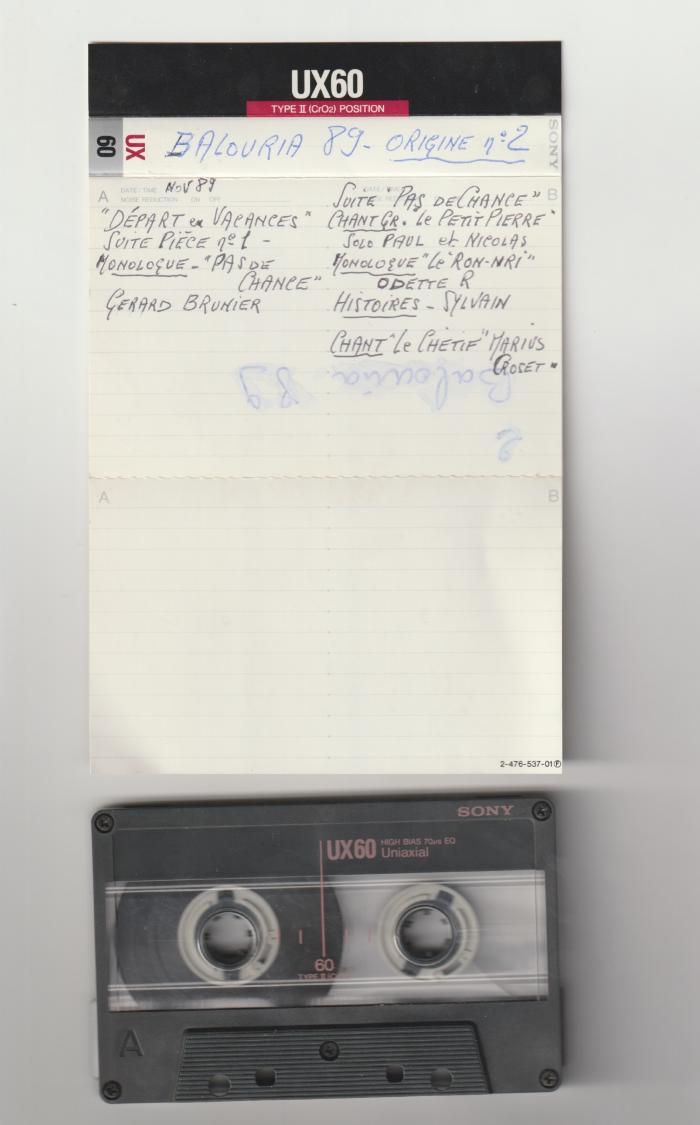 UX60
TYPE II (CrO2) POSITION
60 UX
BALOURIA 89 - ORIGINE nº2
SONY
A
DATE / TIME NOV 89
NOISE REDUCTION ON OFF
"DÉPART en VACANCES"
SUITE PIÈCE nº1 -
MONOLOGUE - "PAS DE
CHANCE"
GERARD BRUNIER
B
SUITE "PAS DE CHANCE"
CHANT GR. "Le PETIT PIERRE"
SOLO PAUL et NICOLAS
MONOLOGUE "Le RON-NRI"
ODETTE R
HISTOIRES - SYLVAIN
CHANT "Le CHETIF" MARIUS
CROSET
Balouria 89
2
A
B
2-476-537-01 P
SONY
UX60 HIGH BIAS 70µs EQ
Uniaxial
60
TYPE II (C
A